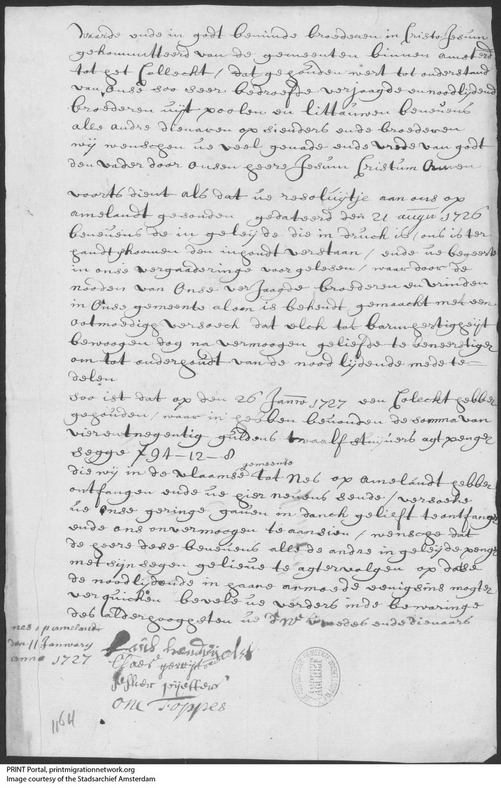 Waerde ende in godt beminde broederen in Cristo Jesum
gekommitteerd van de gemeenten binnen amsterd
tot het Collecht / dat gehouden wert tot onderstand
van onse soo seer bedroefde verjaagde en noodlijdend
broederen uijt poolen en littauwen beneuens
alle andre dienaren opsienders ende broederen
wij wenschen ue veel genade ende vrede van godt
den vader door onsen heere Jesum Cristum Amen
voorts dient als dat ue resoluijtje aen ons op
amelandt gesonden gedateerd den 21 augu 1726
beneuens de in geleijde die in druck is / ons is ter
handt koomen den inhoudt verstaan / ende ue begeerte
in onse vergaaderinge voor gelesen / waar door de
nooden van onse verjaagde broederen en vrinden
in onse gemeente aloom is bekendt gemaackt met een
ootmoedigh versoeck dat elck tot barmhertigheijt
bewoogen dog na vermoogen geliefde te
om tot onderhoudt van de nood lijdende mede te
delen
soo ist dat op den 26 Janw 1727 een Colecht hebben
gehouden / waar in hebben beuonden de somma van
vierentnegentig guldens twaalf stuijuers agt penge
segge f 94-12-8
gemeente
die wij in de vlaamse tot Nes op amelandt hebben
ontfangen ende ue hier neuens sende / versoeke
ue onse geringe gauen in danck gelieft te ontfange
ende ons onvermoogen te aansien / wensche dat
de heere dese beneuens alle de andre in geleijde penge
met sijn segen gelieue te agtervolgen op dat se
de noodlijdende in haare armoede eenigsins mogte
verquicken beuele ue verders in de bewaringe
des alderhooghsten ue vreedes ende dienaars
nes op amelandt
den 11 Janwary
anno 1727
Claes gerrijts
one Foppes
1164
PRINT Portal, printmigrationnetwork.org
Image courtesy of the Stadsarchief Amsterdam